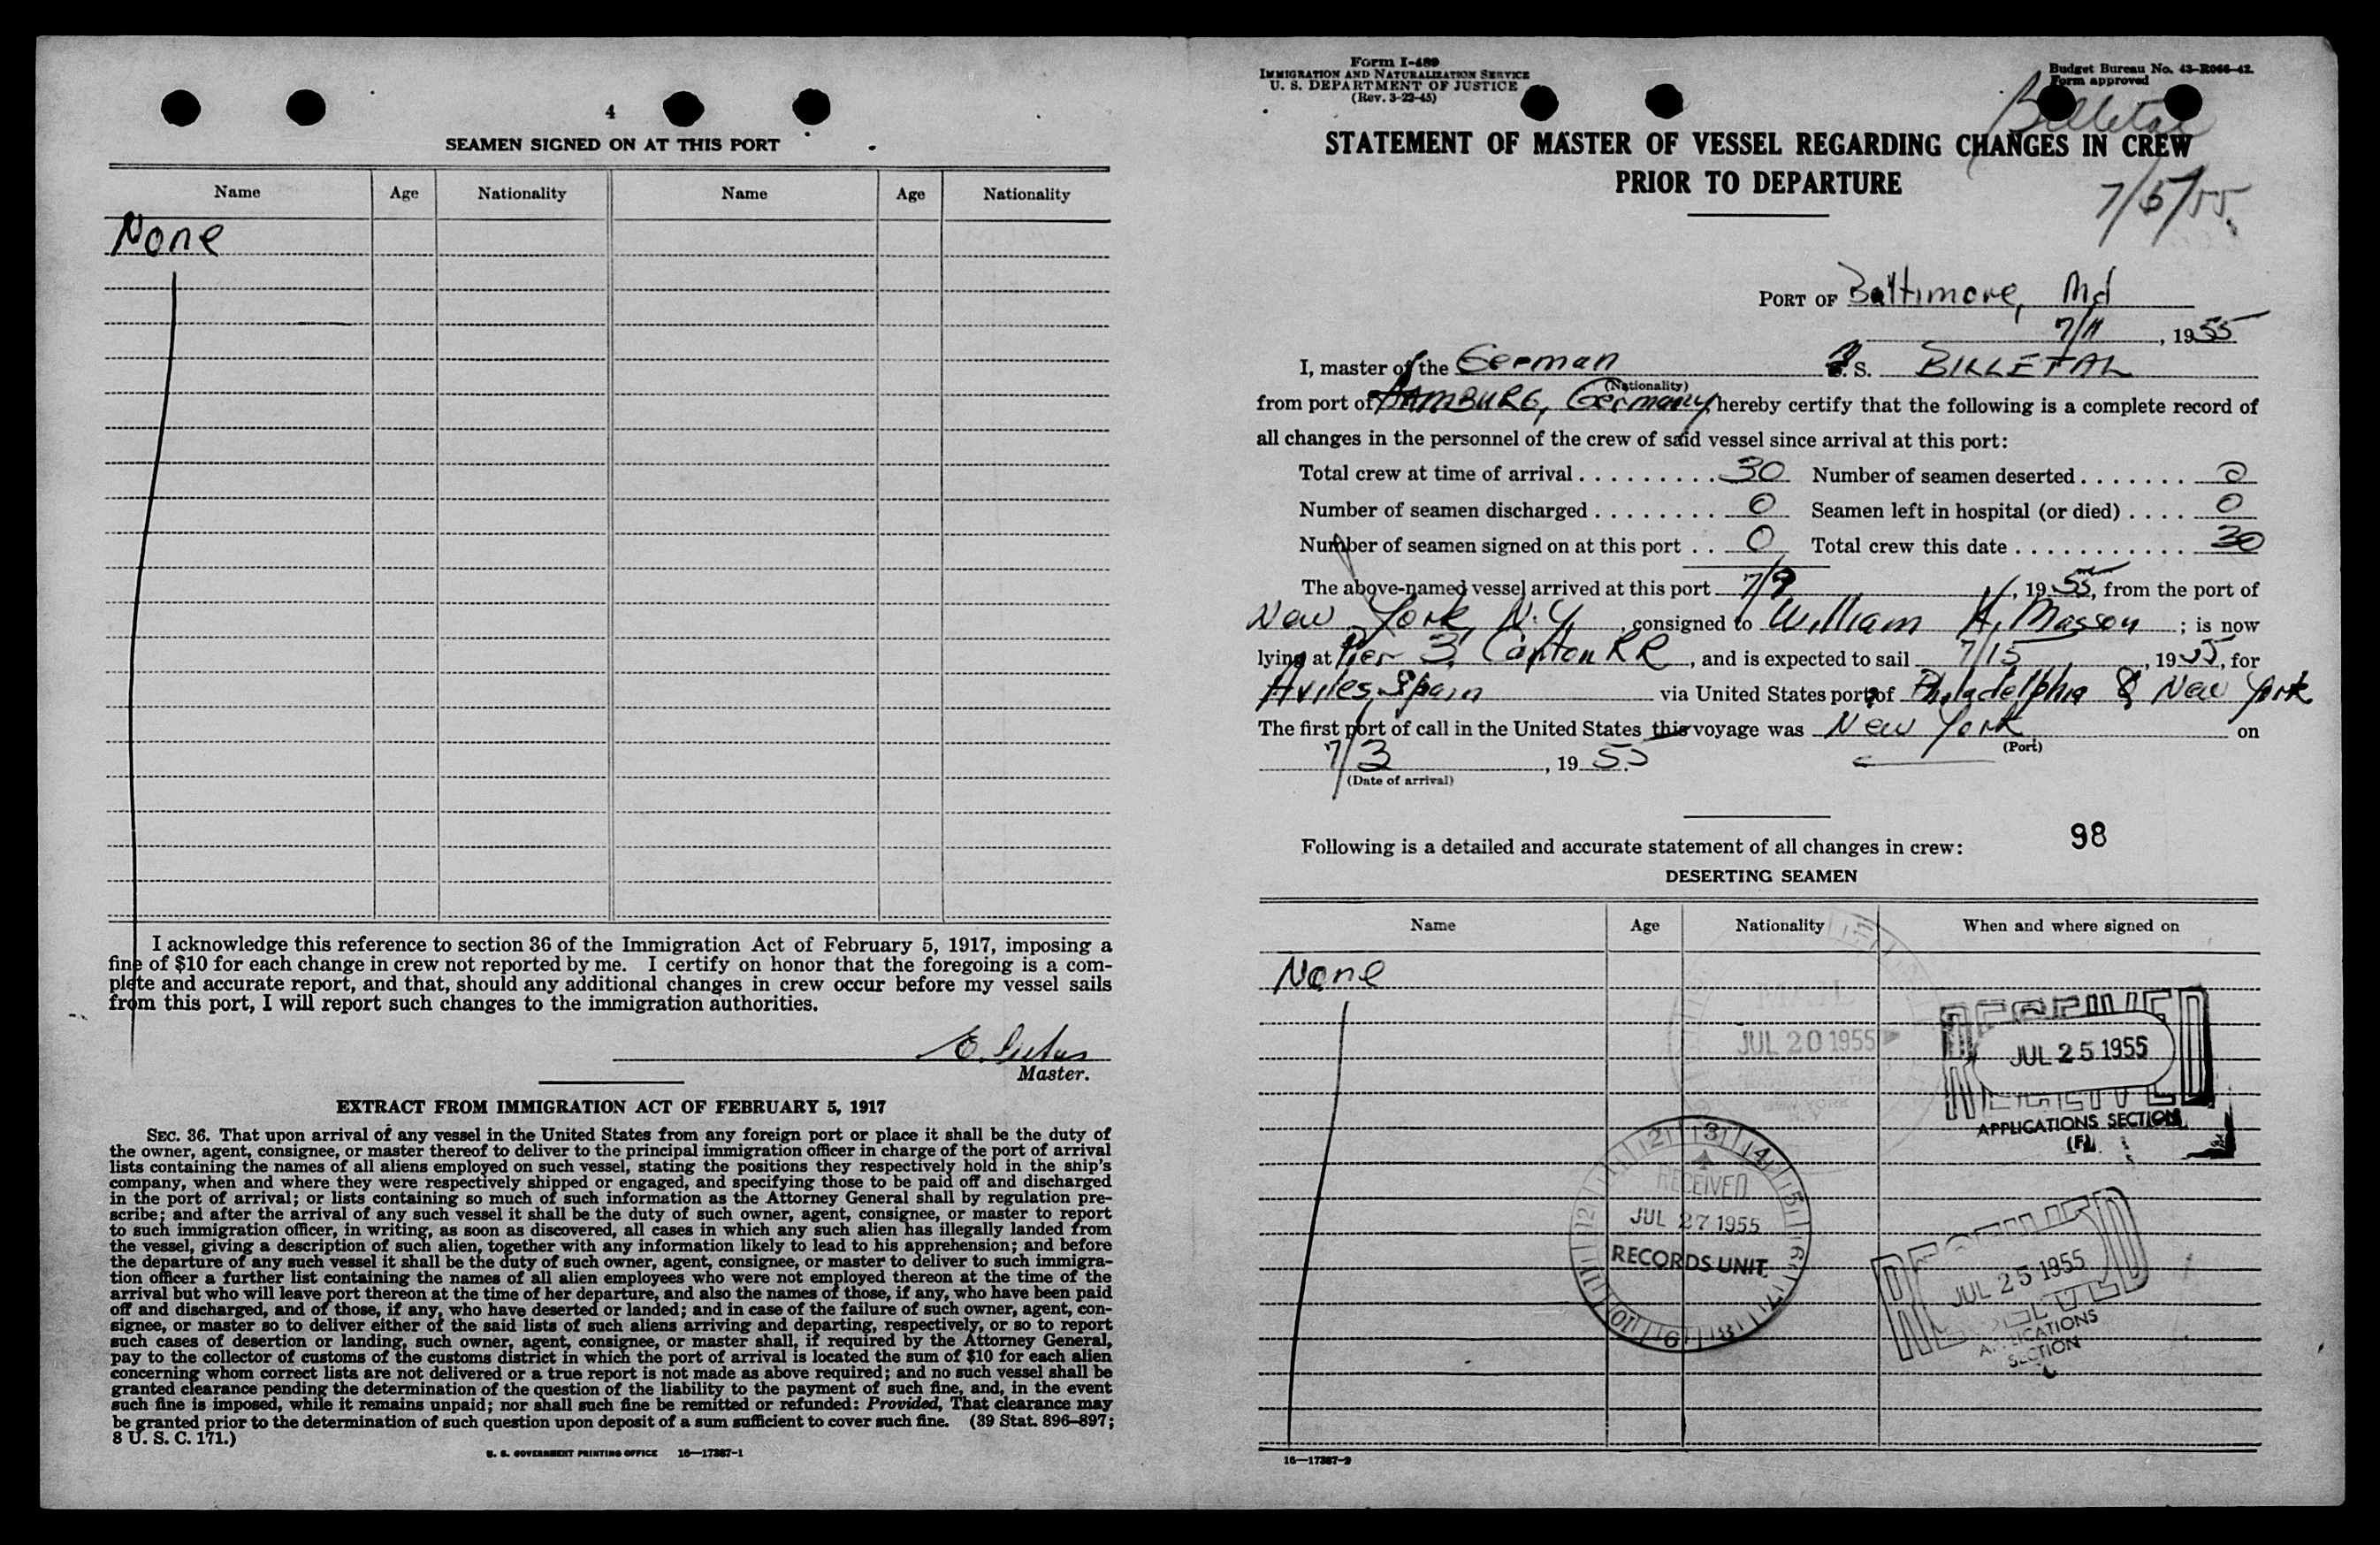 4
SEAMEN SIGNED ON AT THIS PORT
Name Age Nationality Name Age Nationality
None
I acknowledge this reference to section 36 of the Immigration Act of February 5, 1917, imposing a
fine of $10 for each change in crew not reported by me. I certify on honor that the foregoing is a com-
plete and accurate report, and that, should any additional changes in crew occur before my vessel sails
from this port, I will report such changes to the immigration authorities.
E.
Master.
EXTRACT FROM IMMIGRATION ACT OF FEBRUARY 5, 1917
SEC. 36. That upon arrival of any vessel in the United States from any foreign port or place it shall be the duty of
the owner, agent, consignee, or master thereof to deliver to the principal immigration officer in charge of the port of arrival
lists containing the names of all aliens employed on such vessel, stating the positions they respectively hold in the ship's
company, when and where they were respectively shipped or engaged, and specifying those to be paid off and discharged
in the port of arrival; or lists containing so much of such information as the Attorney General shall by regulation pre-
scribe; and after the arrival of any such vessel it shall be the duty of such owner, agent, consignee, or master to report
to such immigration officer, in writing, as soon as discovered, all cases in which any such alien has illegally landed from
the vessel, giving a description of such alien, together with any information likely to lead to his apprehension; and before
the departure of any such vessel it shall be the duty of such owner, agent, consignee, or master to deliver to such immigra-
tion officer a further list containing the names of all alien employees who were not employed thereon at the time of the
arrival but who will leave port thereon at the time of her departure, and also the names of those, if any, who have been paid
off and discharged, and of those, if any, who have deserted or landed; and in case of the failure of such owner, agent, con-
signee, or master so to deliver either of the said lists of such aliens arriving and departing, respectively, or so to report
such cases of desertion or landing, such owner, agent, consignee, or master shall, if required by the Attorney General,
pay to the collector of customs of the customs district in which the port of arrival is located the sum of $10 for each alien
concerning whom correct lists are not delivered or a true report is not made as above required; and no such vessel shall be
granted clearance pending the determination of the question of the liability to the payment of such fine, and, in the event
such fine is imposed, while it remains unpaid; nor shall such fine be remitted or refunded: Provided, That clearance may
be granted prior to the determination of such question upon deposit of a sum sufficient to cover such fine. (39 Stat. 896–897;
8 U. S. C. 171.)
U. S. GOVERNMENT PRINTING OFFICE 16—17387-1
Form I-489
IMMIGRATION AND NATURALIZATION SERVICE
U. S. DEPARTMENT OF JUSTICE
(Rev. 3-22-45)
Budget Bureau No. 43-R066-42.
Form approved
Billetal
7/5/55.
STATEMENT OF MASTER OF VESSEL REGARDING CHANGES IN CREW
PRIOR TO DEPARTURE
PORT OF Baltimore, Md
7/11, 1955
I, master of the German S. BILLETAL
(Nationality)
from port of HAMBURG, Germany, hereby certify that the following is a complete record of
all changes in the personnel of the crew of said vessel since arrival at this port:
Total crew at time of arrival 30 Number of seamen deserted 0
Number of seamen discharged 0 Seamen left in hospital (or died) 0
Number of seamen signed on at this port 0 Total crew this date 30
The above-named vessel arrived at this port 7/9, 1955, from the port of
New York, N.Y., consigned to William H. Masson; is now
lying at Pier 3, Canton RR, and is expected to sail 7/15, 1955, for
Aviles, Spain via United States port of Philadelphia & New York
The first port of call in the United States this voyage was New York on
(Port)
7/3, 1955
(Date of arrival)
98
Following is a detailed and accurate statement of all changes in crew:
DESERTING SEAMEN
Name Age Nationality When and where signed on
None
MAIL
JUL 20 1955
RECEIVED
JUL 25 1955
APPLICATIONS SECTION
(F)
RECEIVED
JUL 27 1955
RECORDS UNIT
RECEIVED
JUL 25 1955
APPLICATIONS
SECTION
16—17387-2